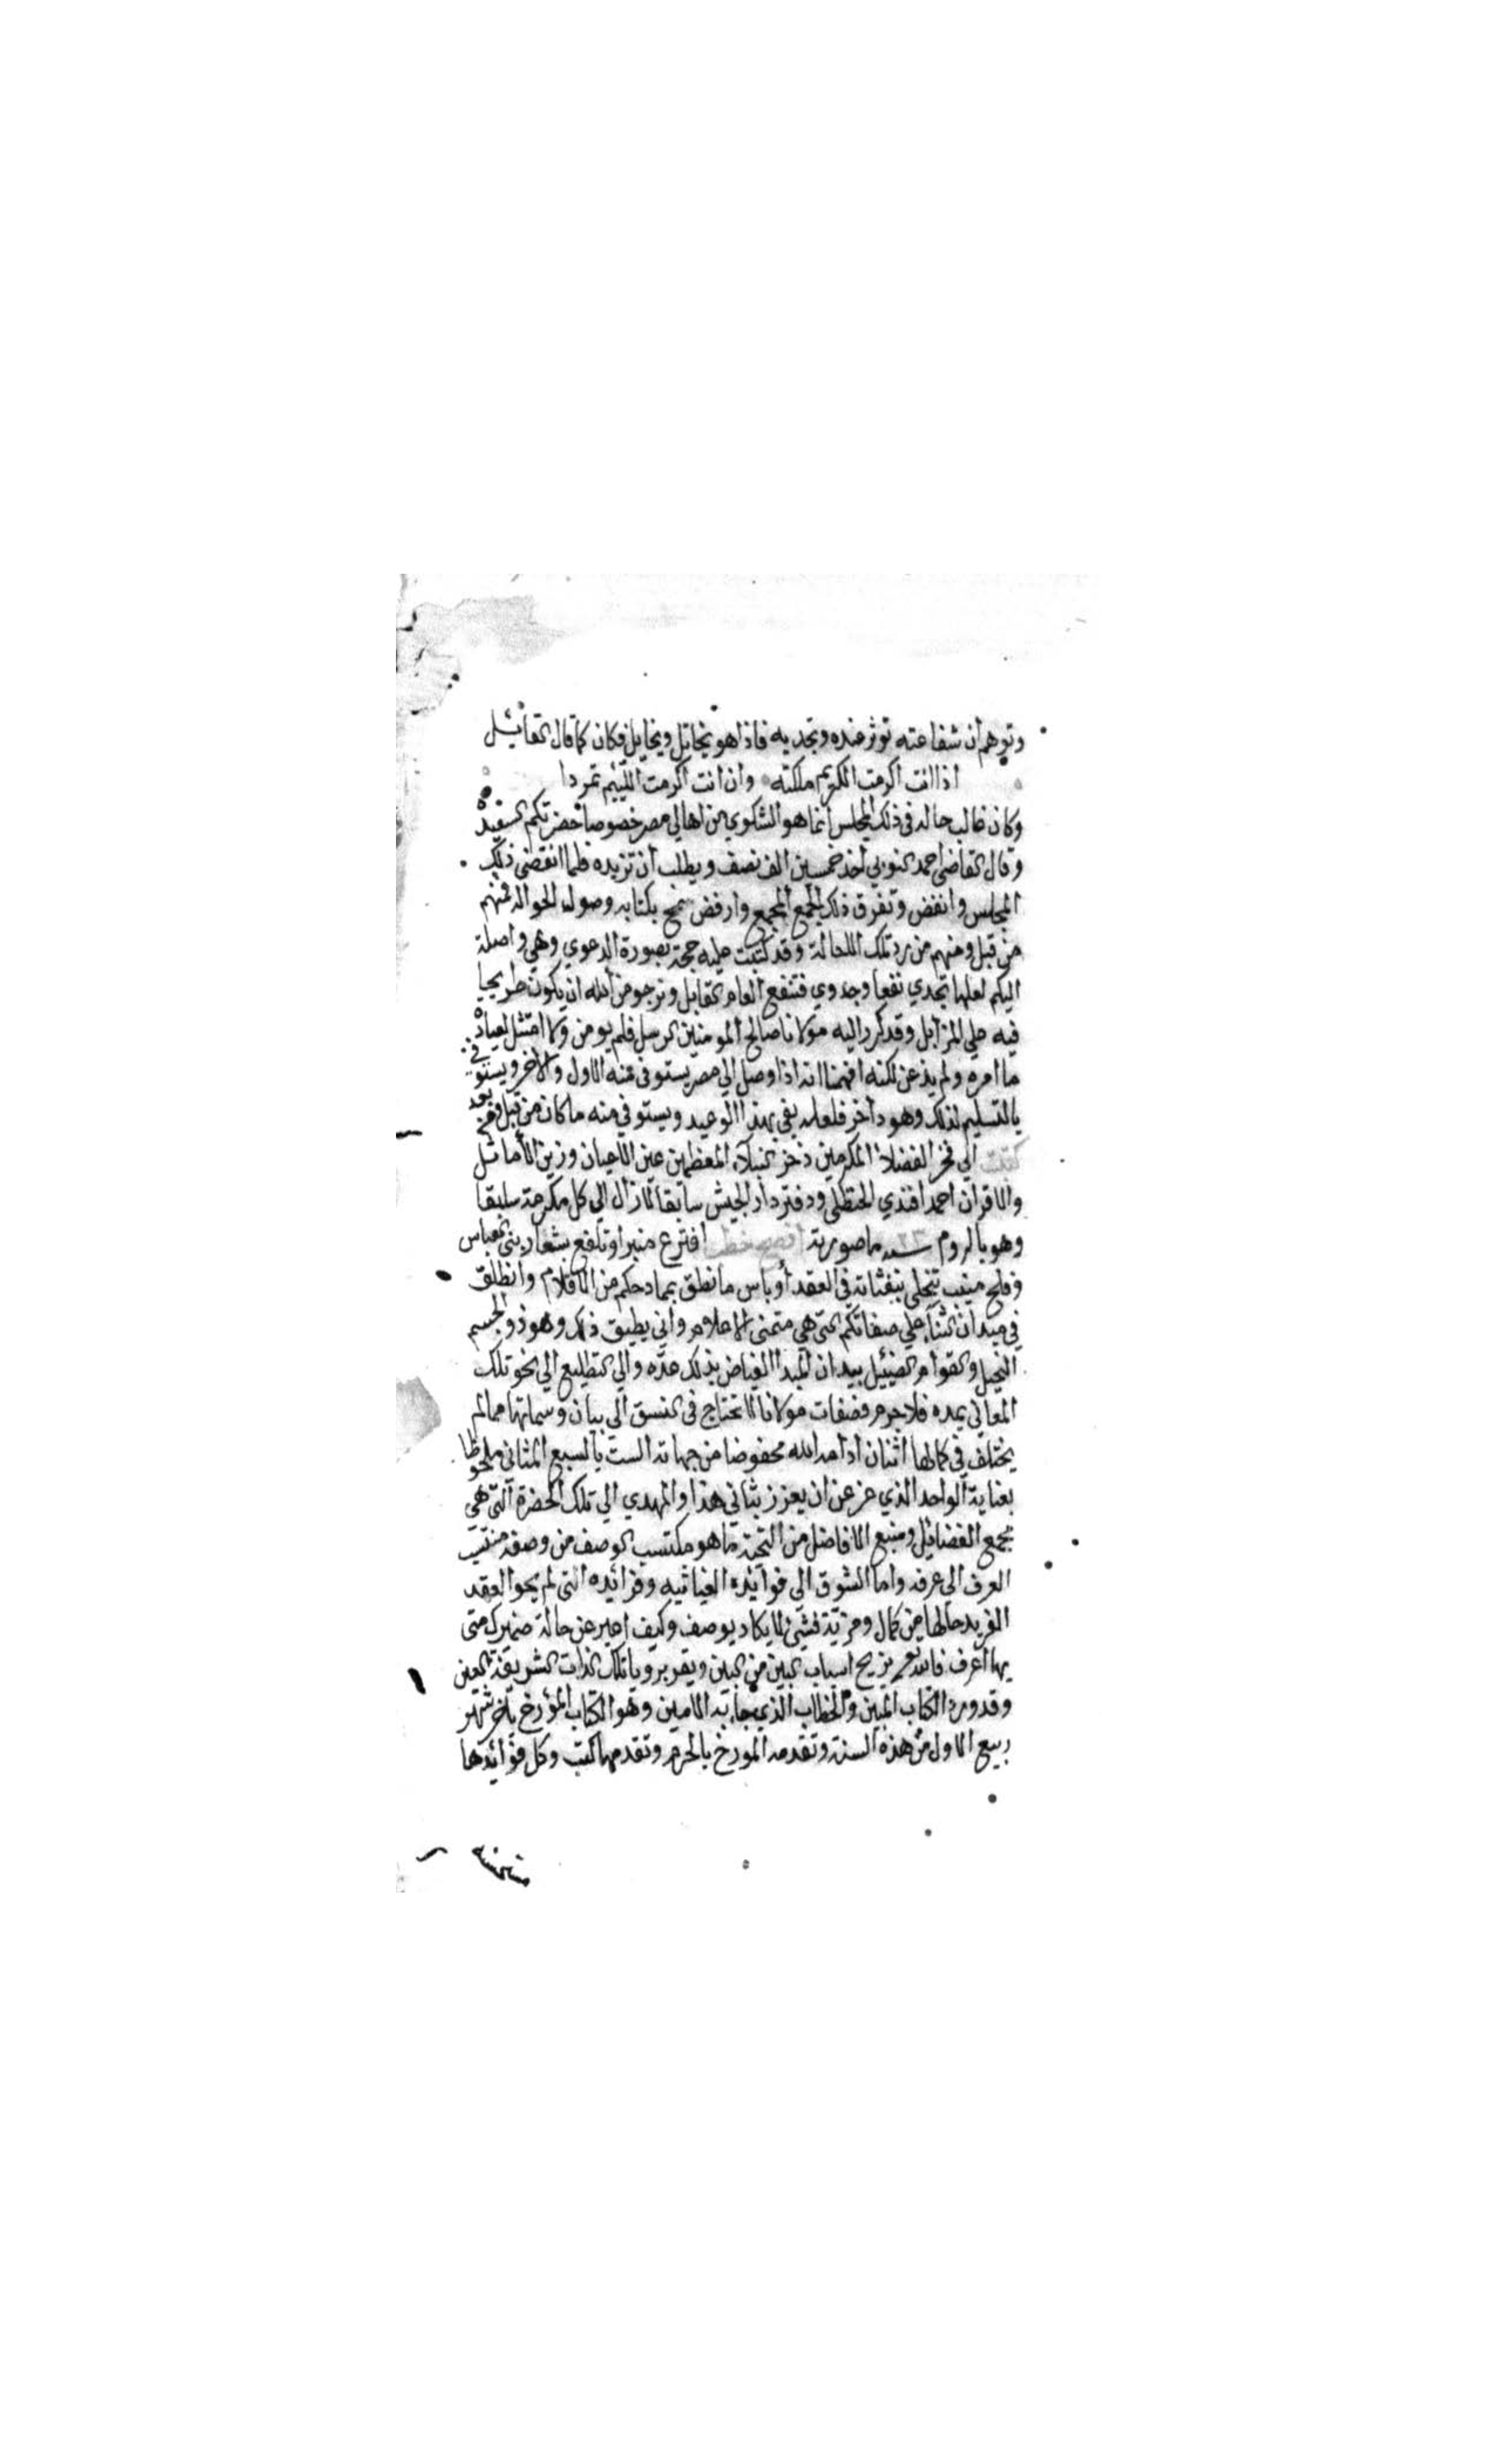 وتوهم ان شفاعته توثر عنده وتجديه فاذا هو يخاتل ويخايل فكان كما قال القائل
اذا انت اكرمت الكريم ملكته وان انت اكرمت اللئيم تمردا
وكان غالب حاله في ذلك المجلس انما هو الشكوي من اهالي مصر خصوصا حضرتكم السعيده
وقال القاضي احمد النوبي اخذ خمسين الف نصف ويطلب ان تزيده فلما انقضي ذلك
المجلس وانفض وتفرق ذلك الجمع المجمع وارفض سمح بكتابه وصول الحواله فمنهم
من قبل ومنهم من رد تلك الحالة وقد كتبت عليه حجة بصورة الدعوي وهي واصلة
اليكم لعلها تجدي نفعا وجدوي فتنفع العام القابل ونرجو من الله ان يكون طريحيا
فيه علي المزابل وقد كرر اليه مولانا صالح المومنين الرسل فلم يومن ولا امتثل لعباد
ما امره ولم يذعن لكنه افهمنا انه اذا وصل الي مصر يستوفى منه الاول والاخر ويستوفي
بالتسليم لذلك وهو داخر فلعله يفي بهذا الوعيد ويستوفي منه ما كان من قبل ومن بعد
كتبت الي فخر الفضلا المكرمين ذخر النبلآء المعظمين عين الاعيان وزين الاماثل
والاقران احمد افندي ودفتردار الجيش سابقا لا زال الي كل مكرمة سابقا
وهو بالروم سنه ٢٣ ما صورته افصح خطيب افترع منبرا وتلفع بشعار بني العباس
في العقد او باس ما نطق بمادحكم من الاقلام وانطلق
في ميدان الثنآء علي صفاتكم التي هي متمنى الاعلام واني يطيق ذلك وهو ذو الجسم
النحيل والقوام الضئيل بيد ان المبدا الفياض بذلك عده والي التطليع الي نحو تلك
المعاني يمده فلا جرم فصفات مولانا لا تحتاج في النسق الي بيان وسماتها مما لم
يختلف في كمالها اثنان ادامه الله محفوضا من جهاته الست بالسبع المثاني ملحوظا
بعناية الواحد الذي عز عن ان يعزز بثاني هذا والمهدي الي تلك الحضرة التي هي
مجمع الفضائل ومنبع الافاضل من التحية ما هو مكتسب الوصف من وصفه منتسب
العرف الى عرفه واما الشوق الي فوائده الغياثيه وفرائده التي لم يحو العقد
الفريد حالها من كمال ومزية فشيئ لا يكاد يوصف وكيف اعبر عن حالة ضميرك متى
بها اعرف فالله تعالى يزيح اسباب البين من البين ويقر برويا تلك الذات الشريفة العين
وقد ورد الكتاب المبين والخطاب الذي جا به الامين وهو الكتاب المؤرخ باخر شهر
ربيع الاول من هذه السنة وتقدمه المورخ بالحرم وتقدمهما كتب وكل فوائدها